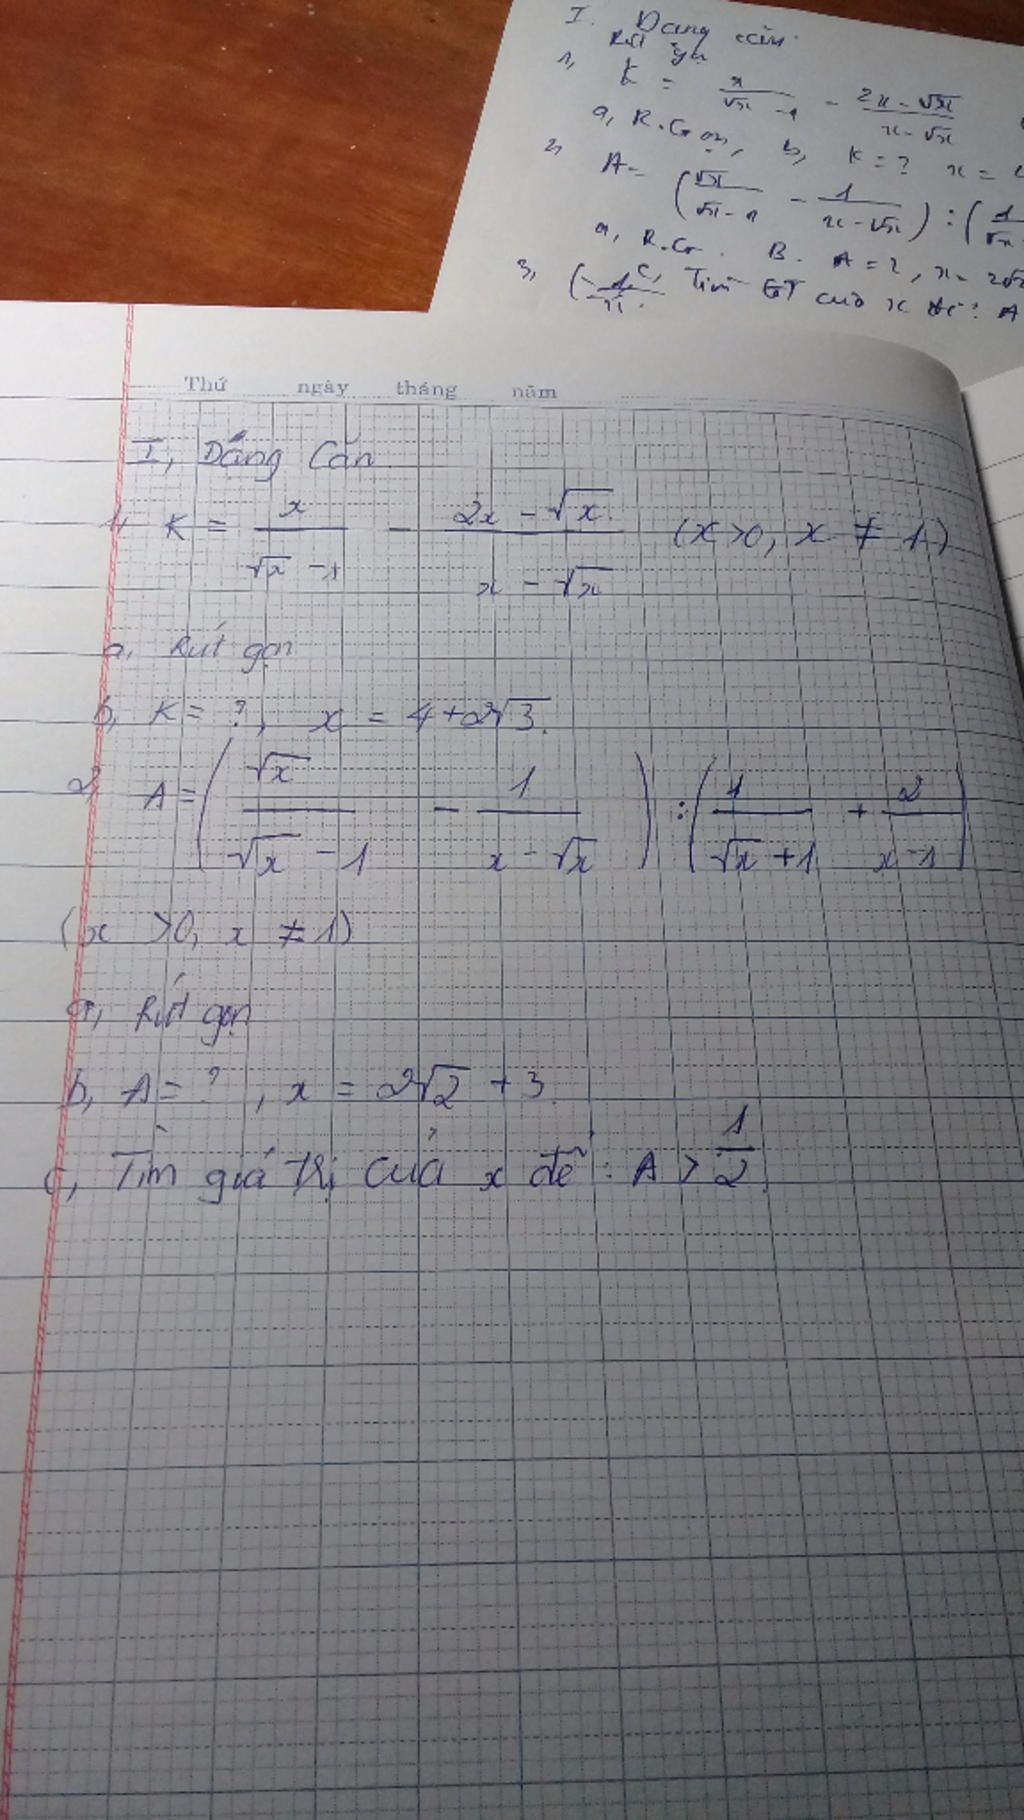 I. Dạng căn
Rút gọn
1, K = x/(√x - 1) - (2x - √x)/(x - √x)
a, R.Gọn, b, K = ? x =
2, A = (√x/(√x - 1) - 1/(x - √x)) : (1/√x
a, R.G. B. A = ?, x = 2√2
c, Tìm GT của x để: A
3, (
Thứ ngày tháng năm
I, Dáng Căn
1, K = x/(√x - 1) - (2x - √x)/(x - √x) (x > 0, x ≠ 1)
a, Rút gọn
b, K = ?, x = 4 + 2√3.
2, A = (√x/(√x - 1) - 1/(x - √x)) : (1/(√x + 1) + 2/(x - 1))
(x > 0, x ≠ 1)
a, Rút gọn
b, A = ?, x = 2√2 + 3.
c, Tìm giá trị của x để: A > 1/2.